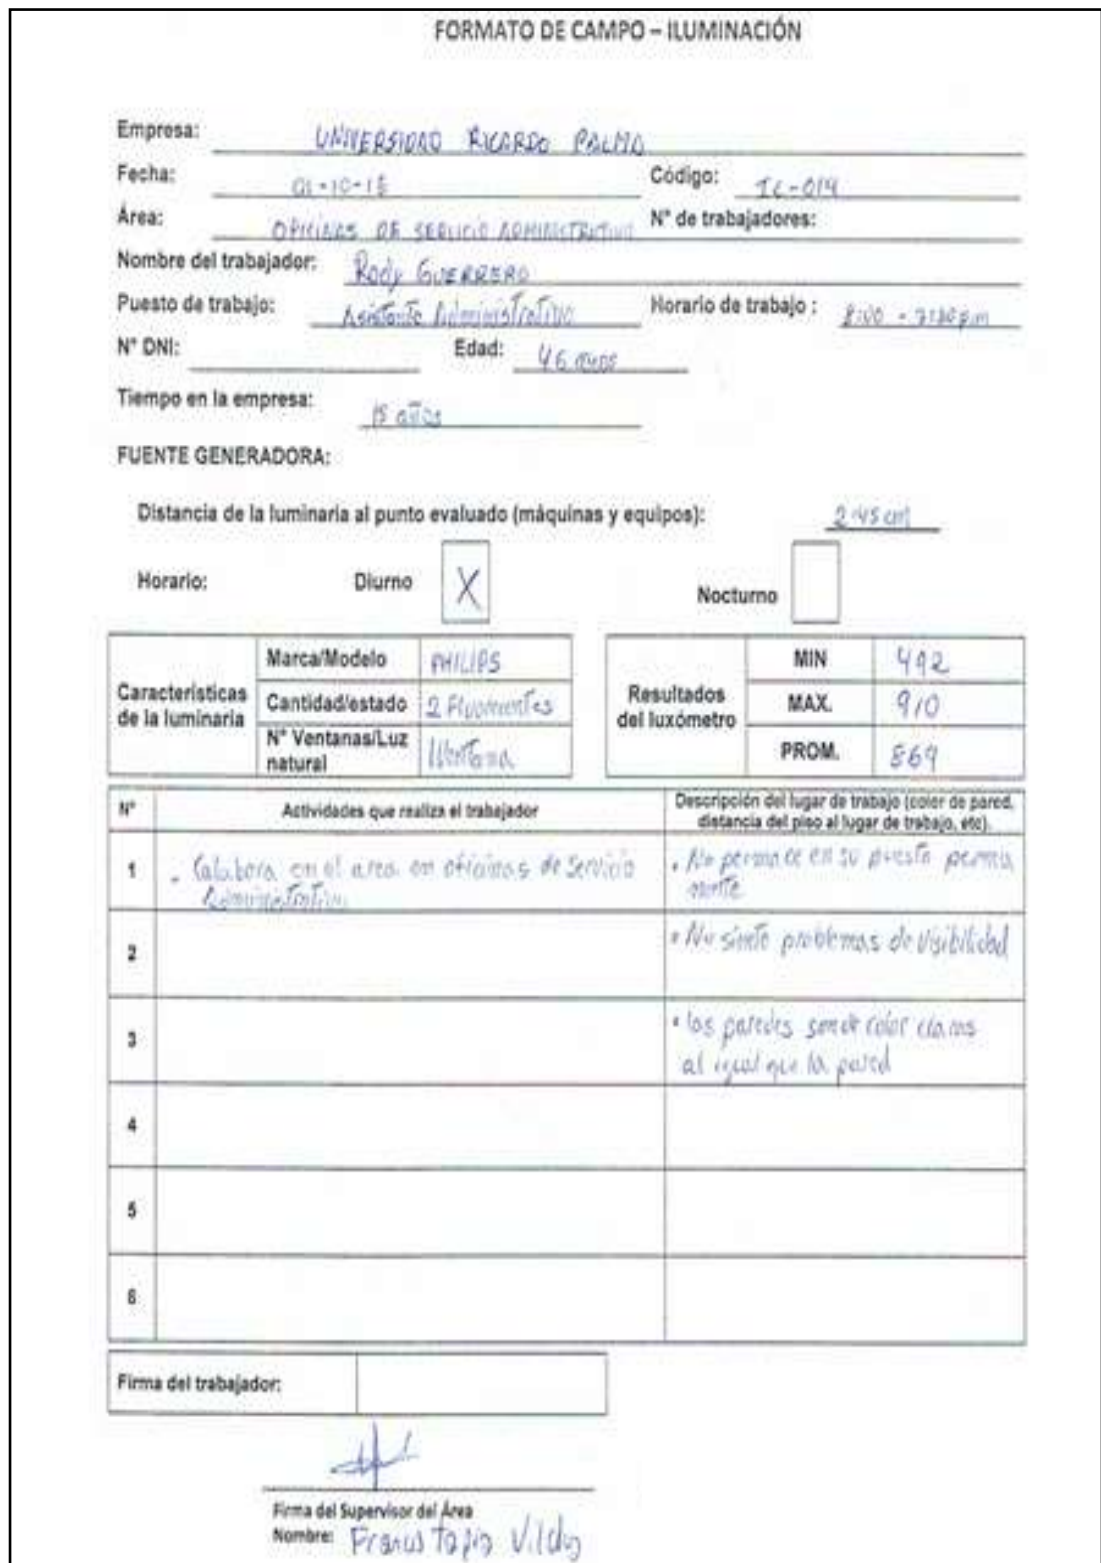 FORMATO DE CAMPO – ILUMINACIÓN
Empresa: UNIVERSIDAD RICARDO PALMA
Fecha: 01-10-18 Código: IL-014
Área: OFICINAS DE SERVICIO ADMINISTRATIVO N° de trabajadores:
Nombre del trabajador: Rody GUERRERO
Puesto de trabajo: Asistente Administrativo Horario de trabajo : 8:00 -
N° DNI: Edad: 46 años
Tiempo en la empresa: 15 años
FUENTE GENERADORA:
Distancia de la luminaria al punto evaluado (máquinas y equipos): 2.45 cm
Horario: Diurno X Nocturno
Características de la luminaria
Marca/Modelo PHILIPS
Cantidad/estado 2 Fluorentes
N° Ventanas/Luz natural
Resultados del luxómetro
MIN 492
MAX. 910
PROM. 869
N° Actividades que realiza el trabajador Descripción del lugar de trabajo (color de pared, distancia del piso al lugar de trabajo, etc).
1 - Calabora en el area en oficinas de Servicio Administrativo
• No permance en su puesto perma nente
2 • No siente problemas de visibilidad
3 • las paredes son de color claros
al igual que la pared
4
5
6
Firma del trabajador:
Firma del Supervisor del Área
Nombre: Francis Tapia